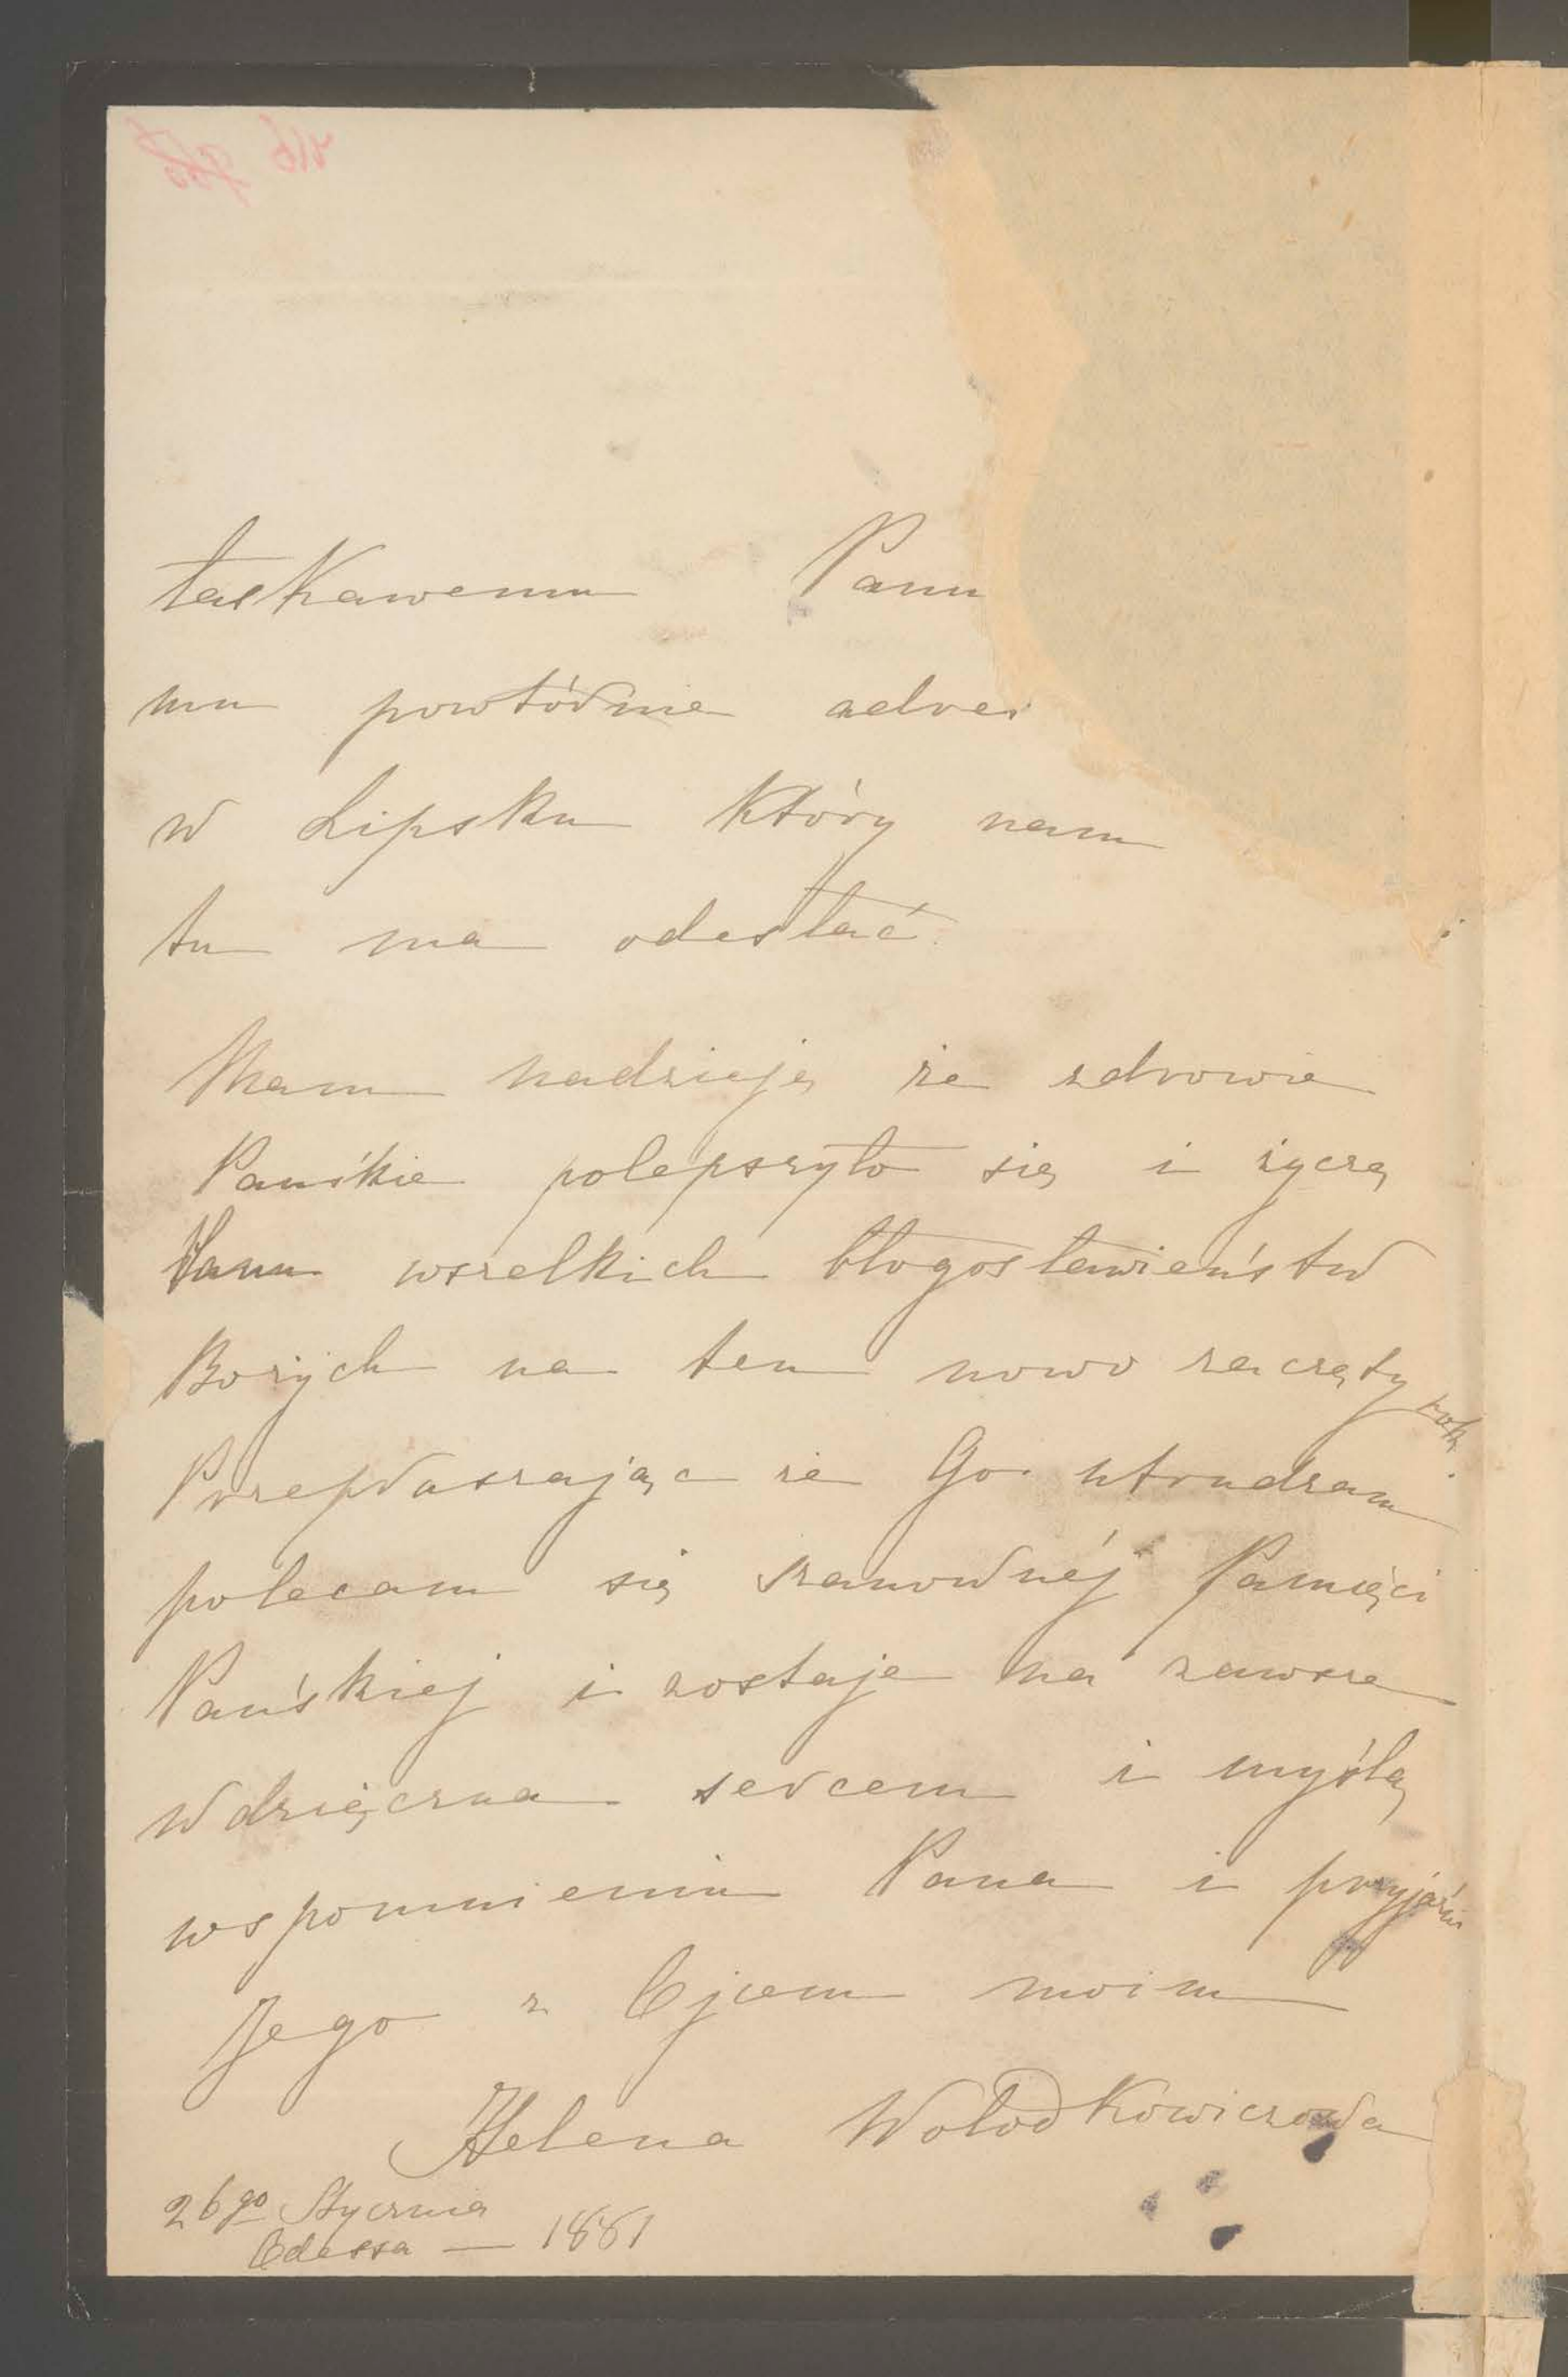 łaskawemu Panu
mu powtórnie adres
w Lipsku który nam
tu ma odesłać.
Mam nadzieję że zdrowie
Pańskie polepszyło się i życzę
Panu wszelkich błogosławieństw
Bożych na ten nowo zaczęty rok
Przepraszając że Go utrudzam
polecam się szanownéj Pamięci
Pańskiej i zostaje na zawsze
wdzięczna sercem i myślą
wspomnieniu Pana i przyjaźni
Jego z Ojcem moim
Helena Wołodkowiczowa
26go Stycznia
Odessa — 1881